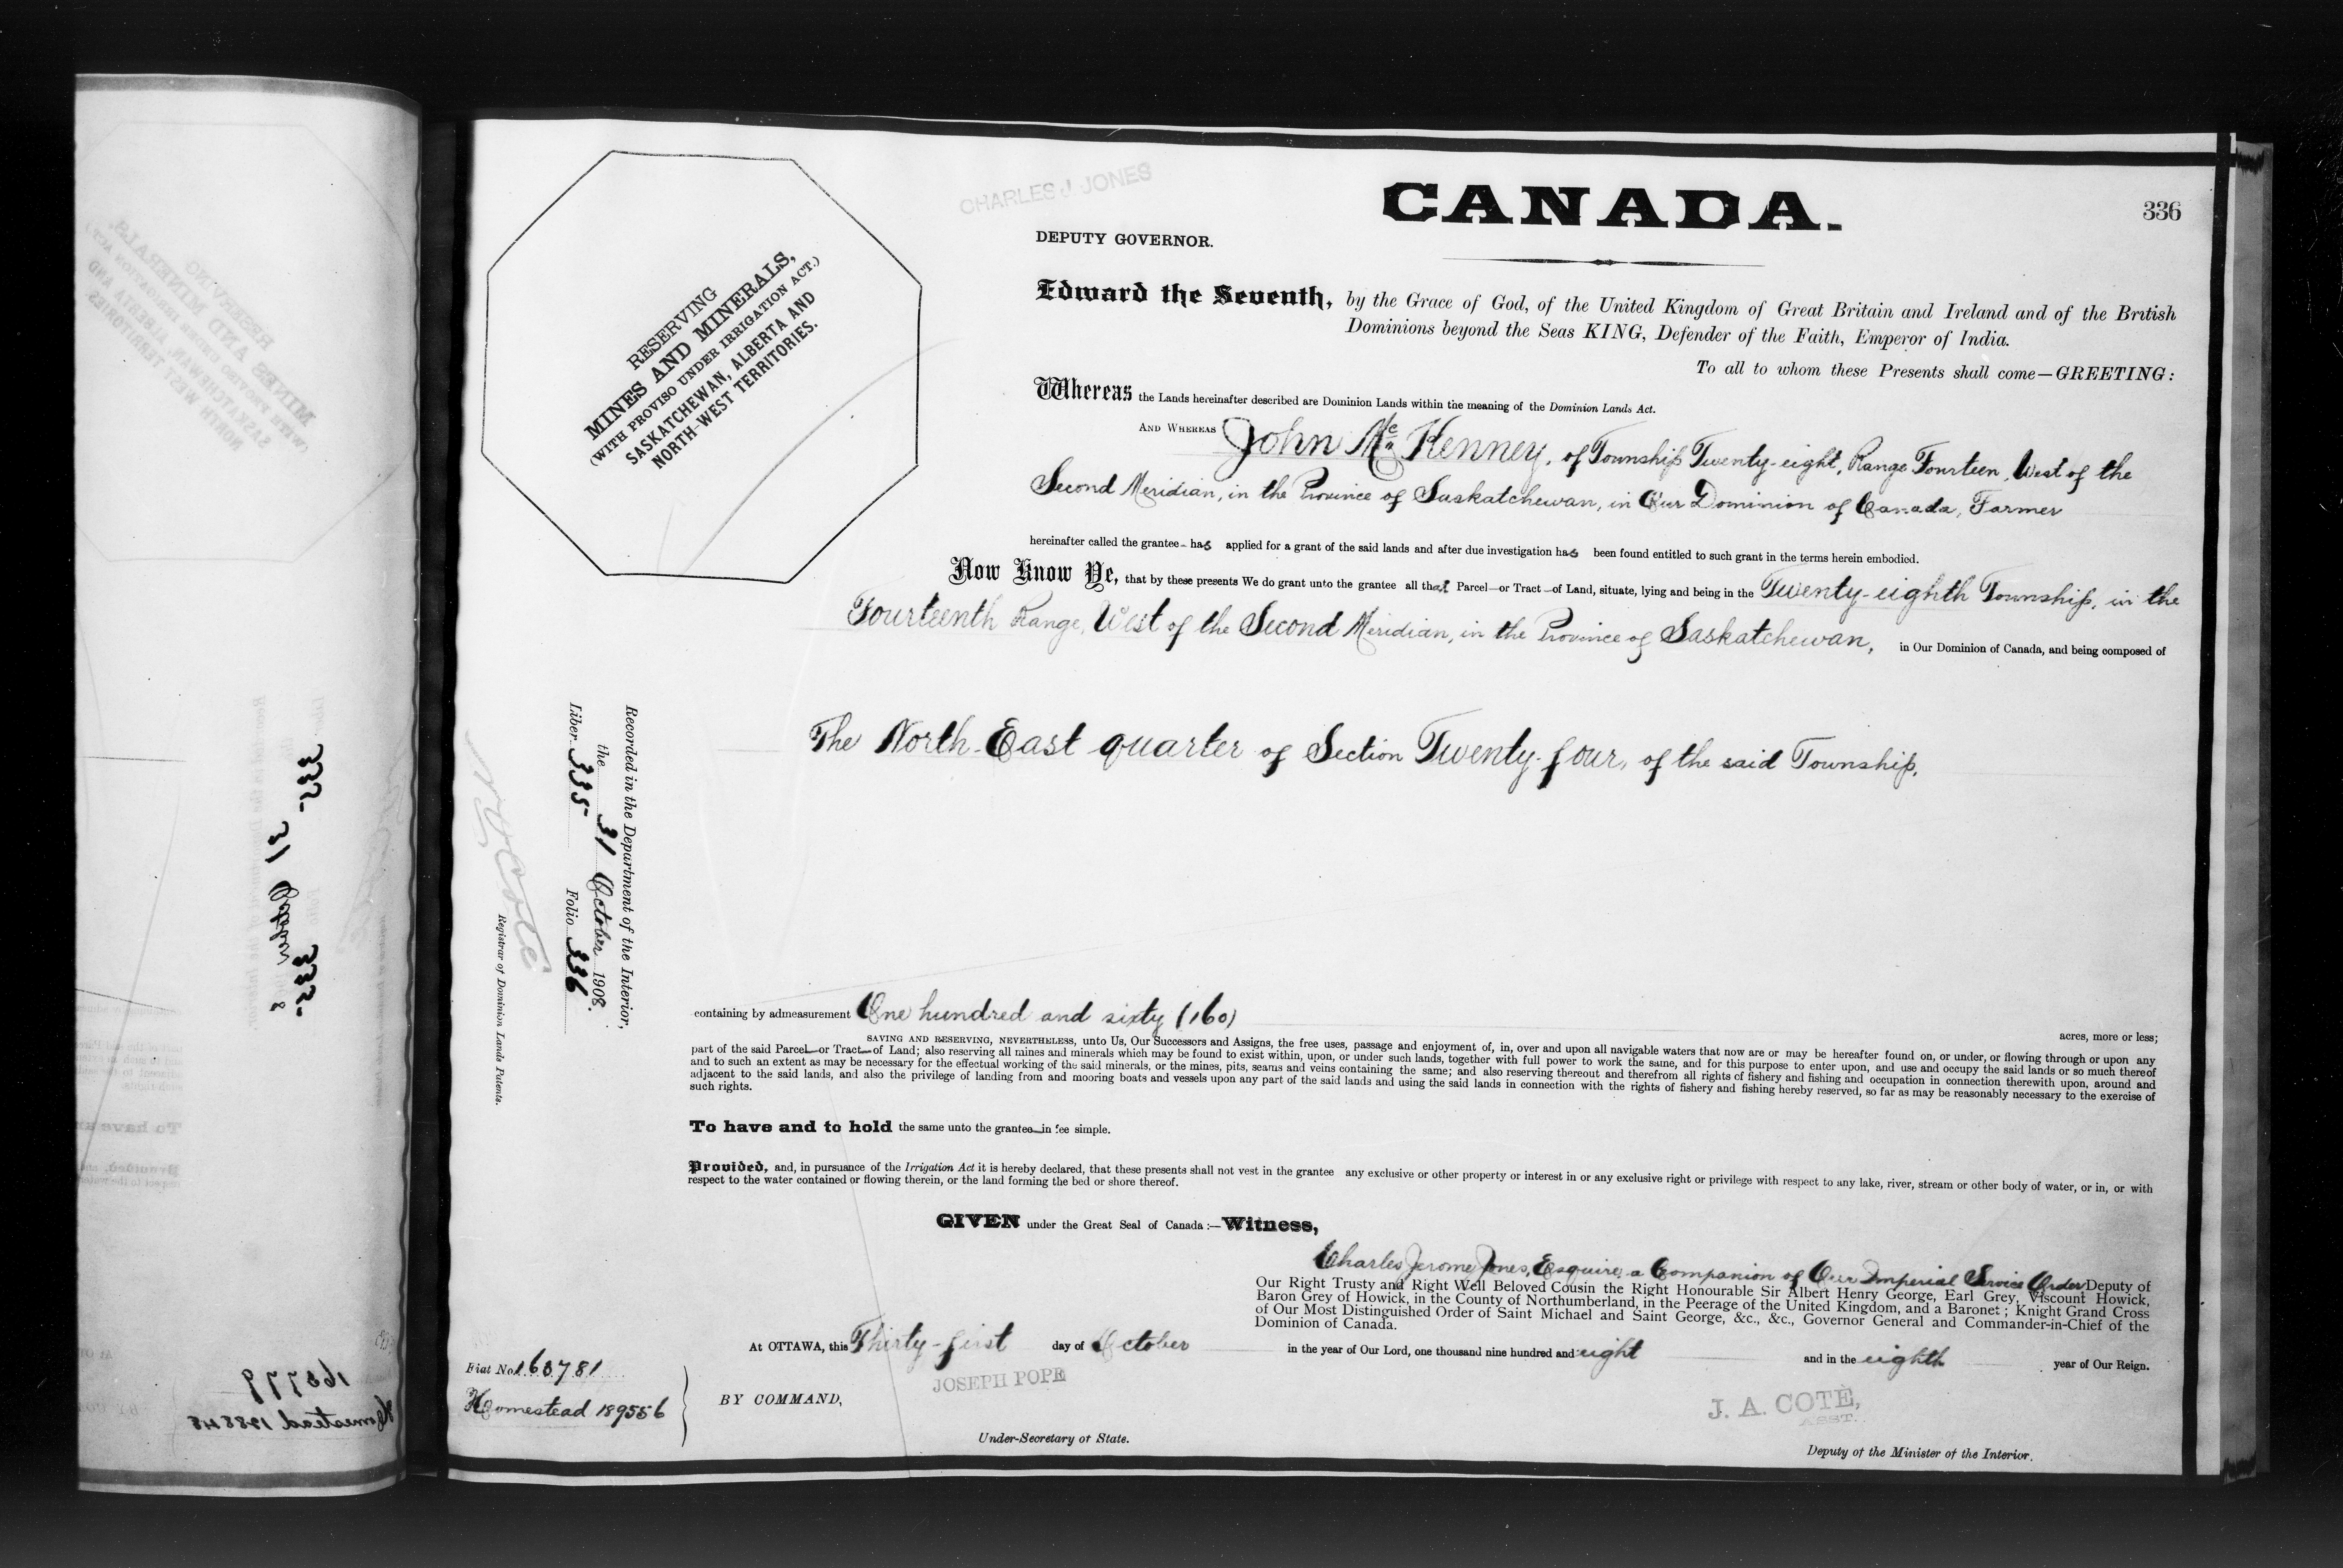 CHARLES J. JONES
CANADA.
336
DEPUTY GOVERNOR.
RESERVING
MINES AND MINERALS,
(WITH PROVISO UNDER IRRIGATION ACT.)
SASKATCHEWAN, ALBERTA AND
NORTH-WEST TERRITORIES.
Edward the Seventh, by the Grace of God, of the United Kingdom of Great Britain and Ireland and of the British
Dominions beyond the Seas KING, Defender of the Faith, Emperor of India.
To all to whom these Presents shall come—GREETING:
Whereas the Lands hereinafter described are Dominion Lands within the meaning of the Dominion Lands Act.
AND WHEREAS John McKenney, of Township Twenty-eight, Range Fourteen, West of the
Second Meridian, in the Province of Saskatchewan, in Our Dominion of Canada, Farmer
hereinafter called the grantee has applied for a grant of the said lands and after due investigation has been found entitled to such grant in the terms herein embodied.
Now Know Ye, that by these presents We do grant unto the grantee all that Parcel or Tract of Land, situate, lying and being in the Twenty-eighth Township, in the
Fourteenth Range, West of the Second Meridian, in the Province of Saskatchewan, in Our Dominion of Canada, and being composed of
The North East quarter of Section Twenty-four, of the said Township,
Recorded in the Department of the Interior,
the 31 October 1908.
Liber 335 Folio 336
N. O. Coté
Registrar of Dominion Lands Patents.
containing by admeasurement One hundred and sixty (160) acres, more or less;
SAVING AND RESERVING, NEVERTHELESS, unto Us, Our Successors and Assigns, the free uses, passage and enjoyment of, in, over and upon all navigable waters that now are or may be hereafter found on, or under, or flowing through or upon any
part of the said Parcel or Tract of Land; also reserving all mines and minerals which may be found to exist within, upon, or under such lands, together with full power to work the same, and for this purpose to enter upon, and use and occupy the said lands or so much thereof
and to such an extent as may be necessary for the effectual working of the said minerals, or the mines, pits, seams and veins containing the same; and also reserving thereout and therefrom all rights of fishery and fishing and occupation in connection therewith upon, around and
adjacent to the said lands, and also the privilege of landing from and mooring boats and vessels upon any part of the said lands and using the said lands in connection with the rights of fishery and fishing hereby reserved, so far as may be reasonably necessary to the exercise of
such rights.
To have and to hold the same unto the grantee in fee simple.
Provided, and, in pursuance of the Irrigation Act it is hereby declared, that these presents shall not vest in the grantee any exclusive or other property or interest in or any exclusive right or privilege with respect to any lake, river, stream or other body of water, or in, or with
respect to the water contained or flowing therein, or the land forming the bed or shore thereof.
GIVEN under the Great Seal of Canada:—Witness,
Charles Jerome Jones, Esquire, a Companion of Our Imperial Service Order Deputy of
Our Right Trusty and Right Well Beloved Cousin the Right Honourable Sir Albert Henry George, Earl Grey, Viscount Howick,
Baron Grey of Howick, in the County of Northumberland, in the Peerage of the United Kingdom, and a Baronet; Knight Grand Cross
of Our Most Distinguished Order of Saint Michael and Saint George, &c., &c., Governor General and Commander-in-Chief of the
Dominion of Canada.
At OTTAWA, this Thirty-first day of October in the year of Our Lord, one thousand nine hundred and eight and in the eighth year of Our Reign.
Fiat No. 163781
Homestead 189556
BY COMMAND,
JOSEPH POPE
Under-Secretary of State.
J. A. COTÉ,
ASST.
Deputy of the Minister of the Interior.